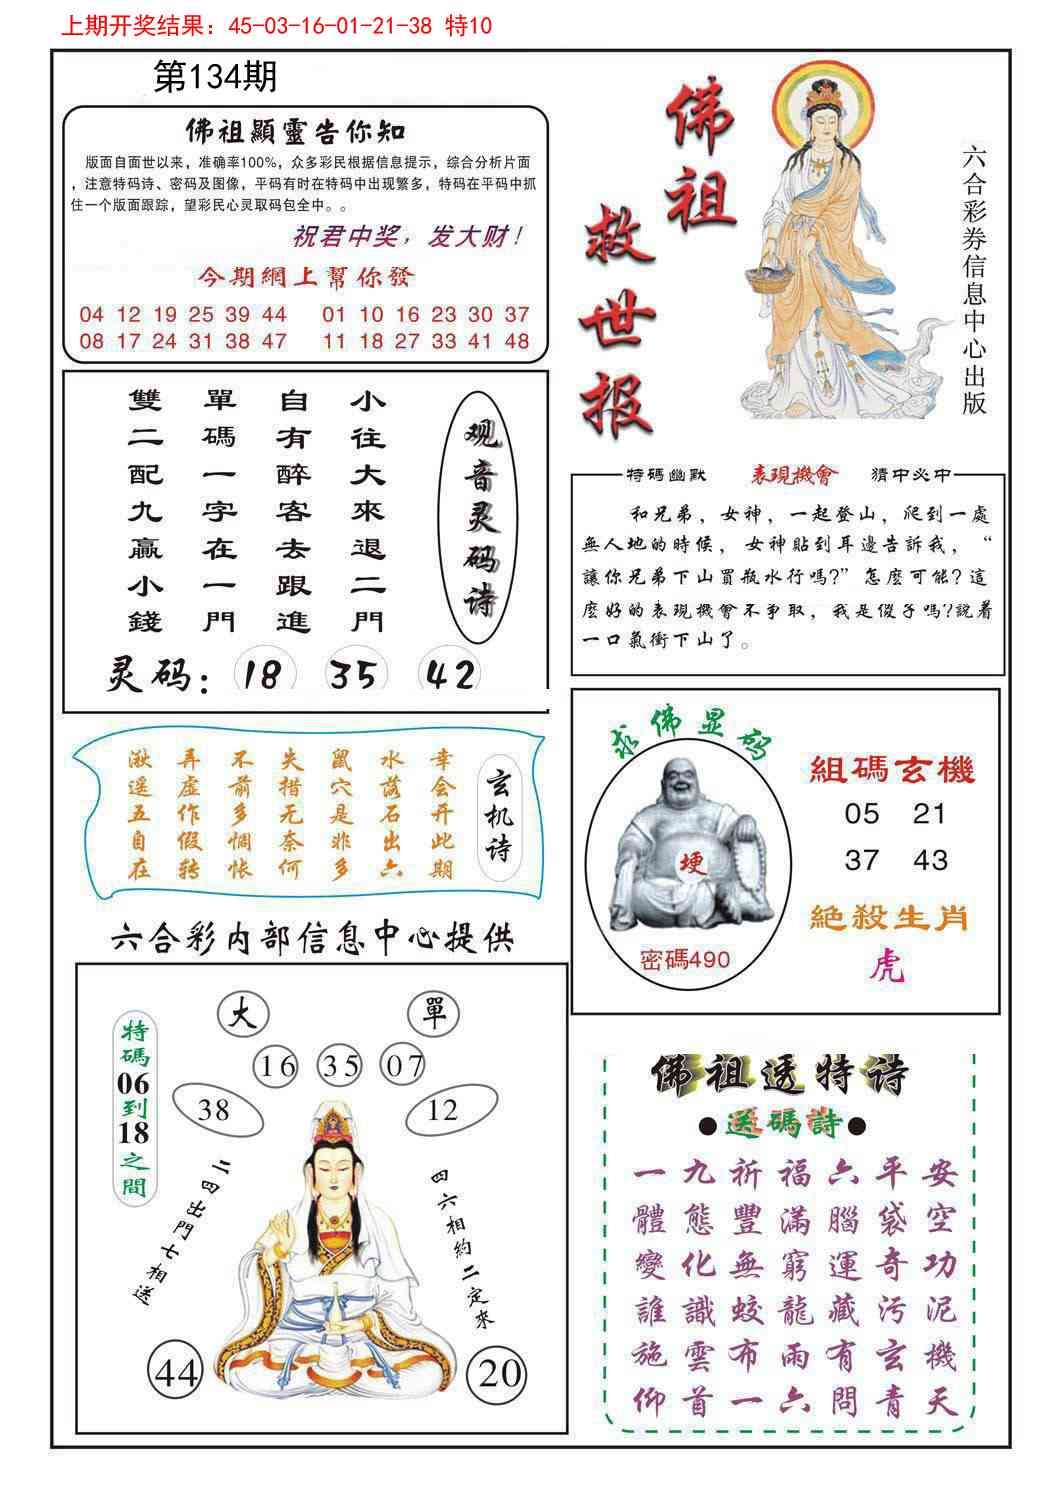 上期开奖结果：45-03-16-01-21-38 特10
第134期
佛祖顯靈告你知
版面自面世以来，准确率100%，众多彩民根据信息提示，综合分析片面
，注意特码诗、密码及图像，平码有时在特码中出现繁多，特码在平码中抓
住一个版面跟踪，望彩民心灵取码包全中。。
祝君中奖，发大财！
今期網上幫你發
04 12 19 25 39 44 01 10 16 23 30 37
08 17 24 31 38 47 11 18 27 33 41 48
佛祖救世报
六合彩券信息中心出版
观音灵码诗
小往大來退二門
自有醉客去跟進
單碼一字在一門
雙二配九贏小錢
灵码：18 35 42
特碼幽默 表現機會 猜中必中
和兄弟，女神，一起登山，爬到一處
無人地的時候，女神貼到耳邊告訴我，“
讓你兄弟下山買瓶水行嗎?”怎麼可能?這
麼好的表現機會不爭取，我是傻子嗎?説着
一口氣衝下山了。
玄机诗
幸会开此期
水落石出六
鼠穴是非多
失措无奈何
不前多惆怅
弄虚作假转
潋遥五自在
求佛显码
埂
密碼490
組碼玄機
05 21
37 43
絕殺生肖
虎
六合彩内部信息中心提供
大 單
16 35 07
38 12
特碼06到18之間
二四出門七相送
四六相約二定來
44 20
佛祖透特诗
●送碼詩●
一九祈福六平安
體態豐滿腦袋空
變化無窮運奇功
誰識蛟龍藏污泥
施雲布雨有玄機
仰首一六問青天